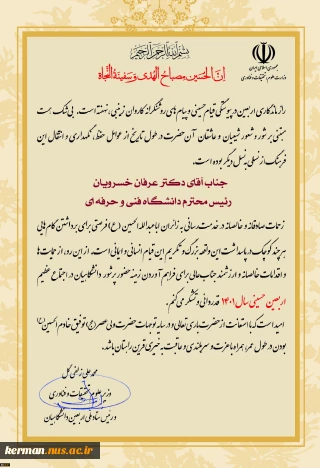 بسم الله الرحمن الرحیم
جمهوری اسلامی ایران
وزارت علوم، تحقیقات و فناوری
ان الحسین مصباح الهدی و سفینة النجاة
راز ماندگاری اربعین در پیوستگی قیام حسینی و پیام های روشنگرانه کاروان زینبی، نهفته است. بی شک سنت
مبتنی بر شور و شعور شیعیان و عاشقان آن حضرت در طول تاریخ از عوامل حفظ، نگهداری و انتقال این
فرهنگ از نسلی به نسل دیگر بوده است.
جناب آقای دکتر عرفان خسرویان
رئیس محترم دانشگاه فنی و حرفه ای
زحمات صادقانه و خالصانه در خدمت رسانی به زائران اباعبدالله الحسین (ع) فرصتی برای برداشتن گام هایی
هر چند کوچک در پاسداشت این واقعه بزرگ و تکریم این قیام انسانی و ایمانی است. از این رو، از حمایت ها
و اقدامات خالصانه و ارزشمند جناب عالی برای فراهم آوردن زمینه حضور پرشور دانشگاهیان در اجتماع عظیم
اربعین حسینی سال ۱۴۰۱ قدردانی و تشکر می کنم.
امید است که با استعانت از حضرت باری تعالی و در سایه توجهات حضرت ولی عصر (عج) توفیق خادم الحسین (ع)
بودن در طول عمر، همراه با عزت و سربلندی و عاقبت به خیری قرین راهتان باشد.
محمد علی زلفی گل
وزیر علوم، تحقیقات و فناوری
و رئیس ستاد ملی اربعین دانشگاهیان
kerman.nus.ac.ir